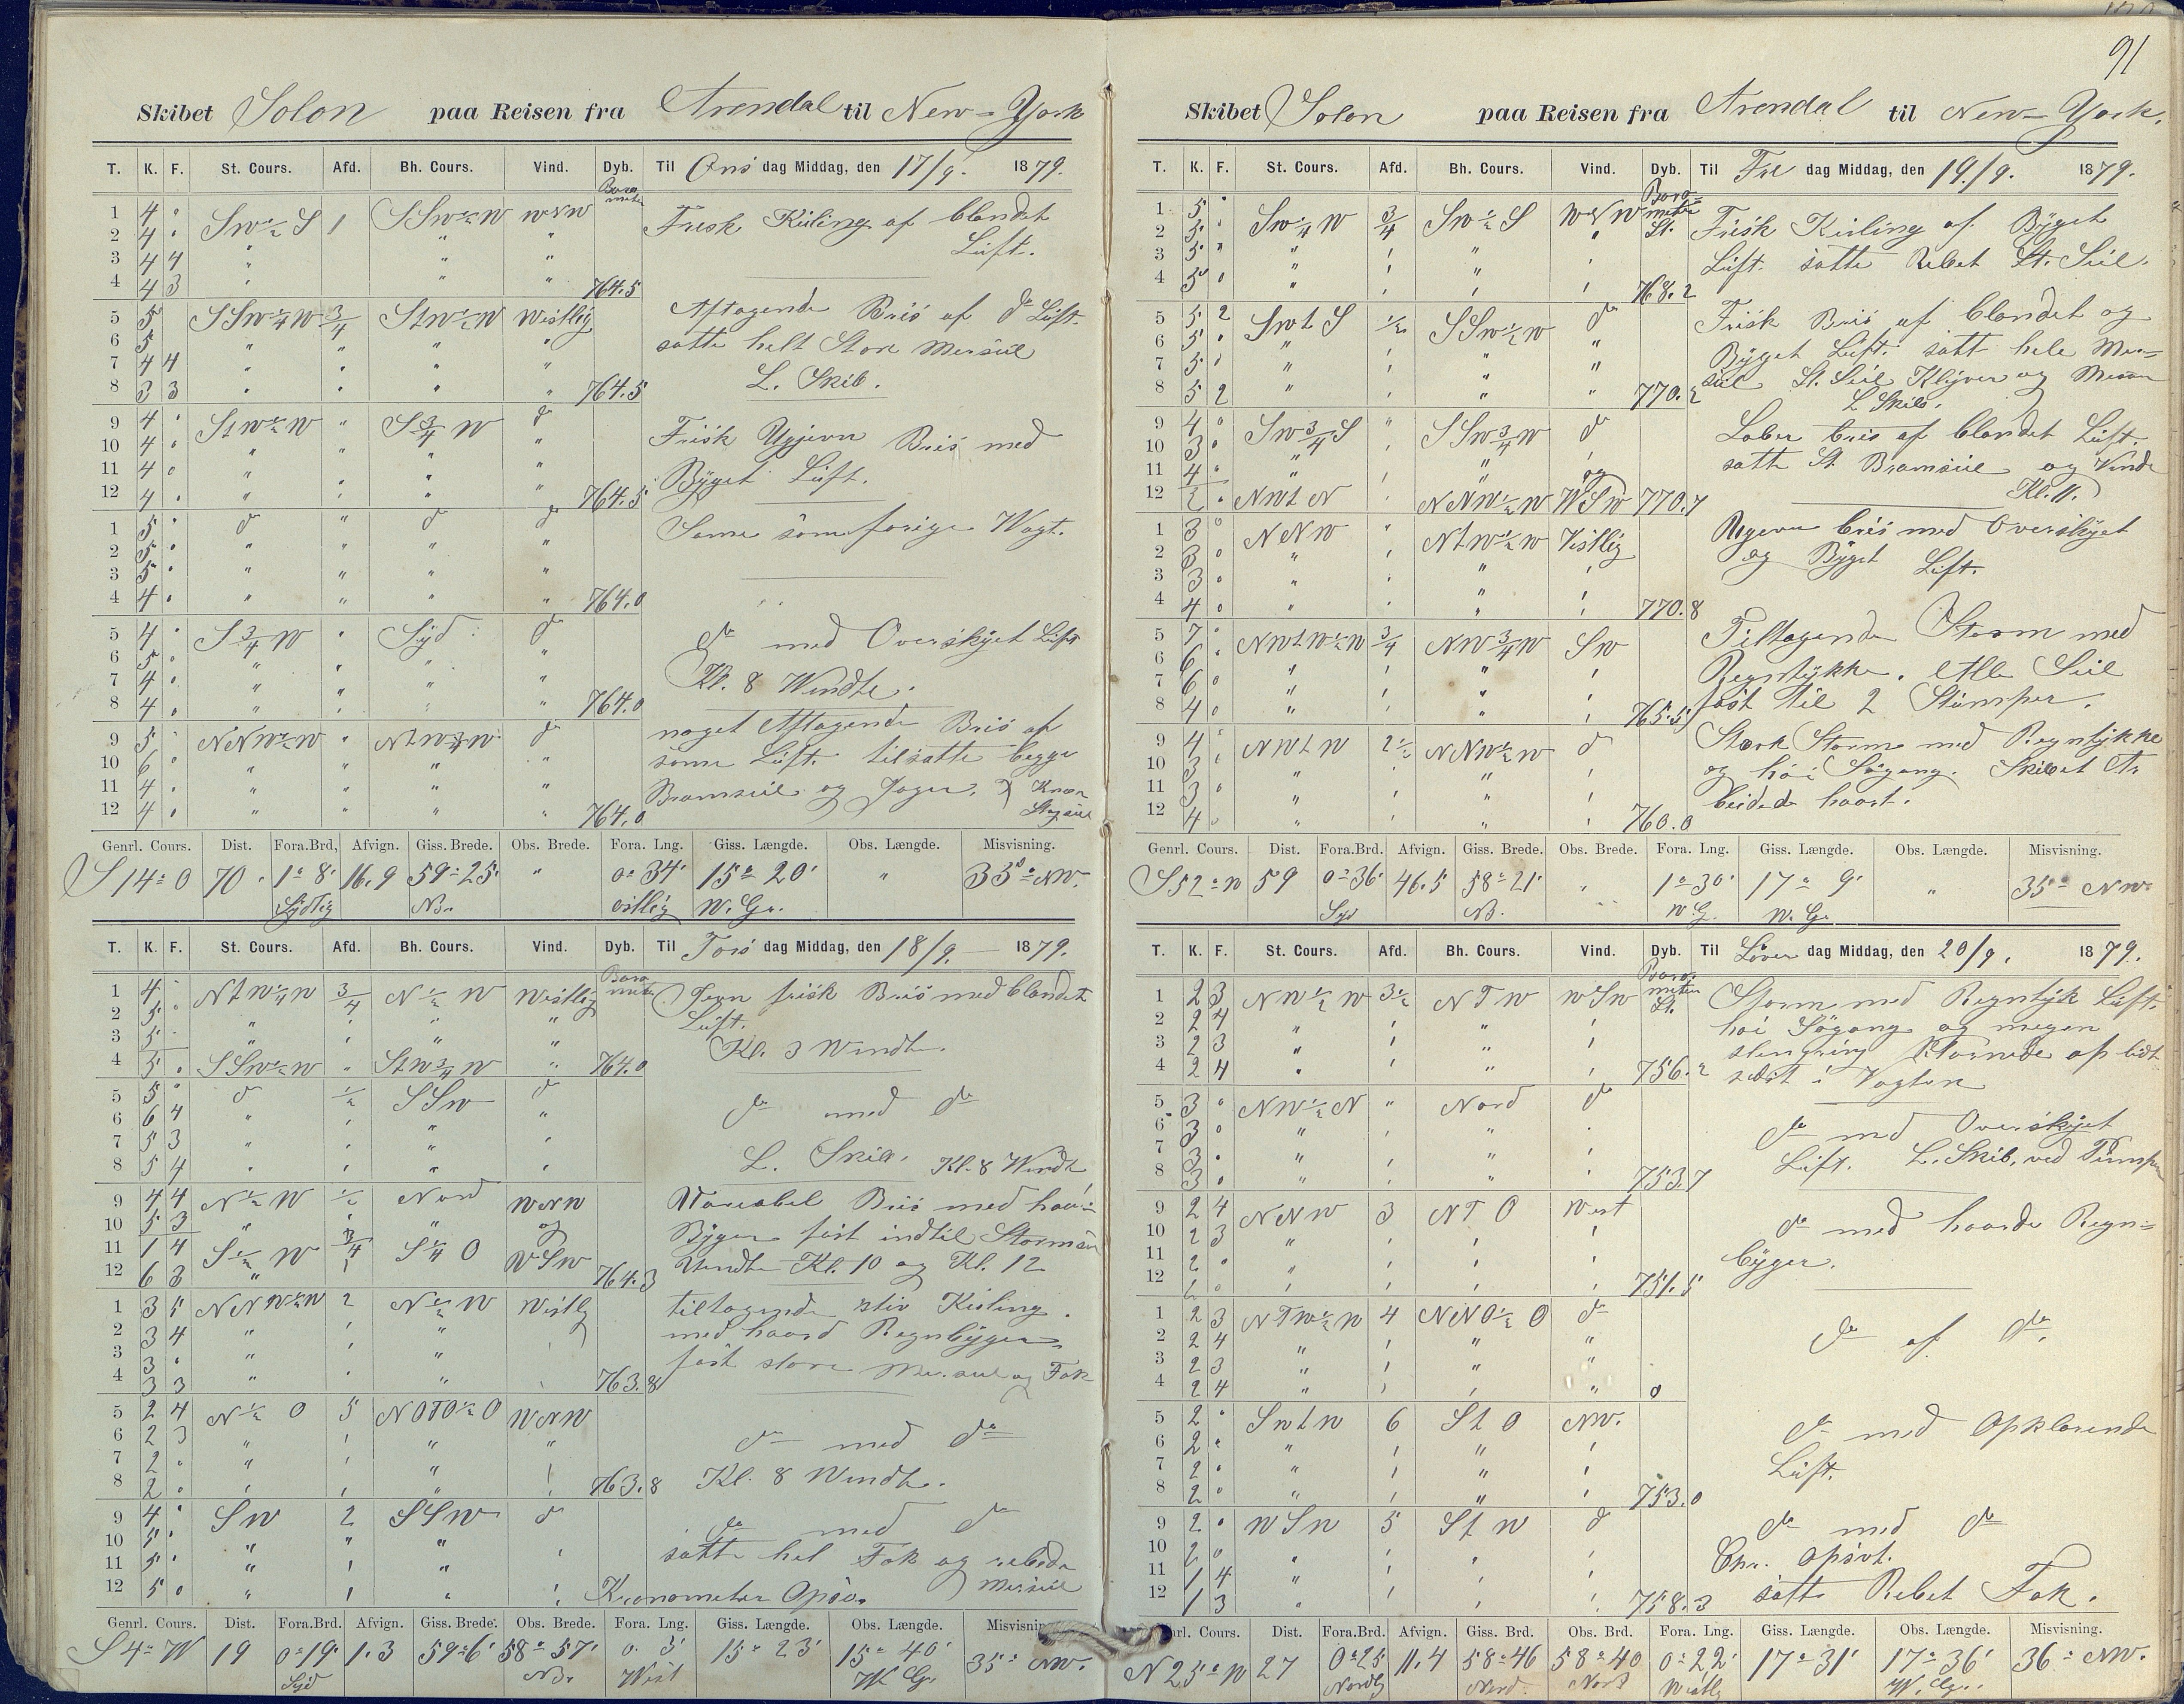 91
Skibet Solon paa Reisen fra Arendal til New-York
T. K. F. St. Cours. Afd. Bh. Cours. Vind. Dyb. Til Ons dag Middag, den 17/9. 1879.
Barometer
1 4 " SW½S 1 SSW½W WNW Frisk Kuling af blandet
2 4 " " " " Luft.
3 4 4 " " "
4 4 3 " " " 764.5
5 5 SSW¼W ¾ StW½W Westlig Aftagende Bris af do Luft.
6 5 " " " " satte helt Store Mersseil
7 4 4 " " " " L. Skib.
8 3 3 " " " " 764.5
9 4 " StW½W " S¾W do Frisk Ujevn Bris med
10 4 " " " " " Byget Luft.
11 4 " " " " "
12 4 " " " " " 764.5
1 5 " do " do do Same som forige Wagt.
2 5 " " " " "
3 5 " " " " "
4 4 " " " " " 764.0
5 4 " S¾W " Syd do do med Overskyet Luft
6 5 " " " " " Kl. 8 Wendte.
7 4 " " " " "
8 4 " " " " " 764.0
9 5 " NNW½W " NtW¾W do noget Aftagende Bris af
10 6 " " " " " samme Luft. tilsatte begge
11 4 " " " " " Bramseil og Jager.
12 4 " " " " " 764.0
Genrl. Cours. Dist. Fora.Brd, Afvign. Giss. Brede. Obs. Brede. Fora. Lng. Giss. Længde. Obs. Længde. Misvisning.
S 14° O 70 1° 8' 16.9 59° 25' " 0° 34' 15° 20' " 35° NW.
Sydlig Nr. ostlig W. Gr.
T. K. F. St. Cours. Afd. Bh. Cours. Vind. Dyb. Til Tors dag Middag, den 18/9. 1879.
Barometer
1 4 " NtW¼W ¾ N½W Westlig Jevn frisk Bris med blandet
2 5 " " " " " Luft.
3 5 " " " " " Kl. 3 Wendte.
4 5 " SSW½W " StW¾W " 764.0
5 5 " do ½ SSW do do med do
6 6 4 " " " "
7 5 3 " " " "
8 5 4 " " " " L. Skib. Kl. 8 Wendte
9 4 4 N½W ½ Nord WNW Variabel Bris med haarde
10 5 3 " " " og Byger fast indtil Storm
11 1 4 S½W ¾ S¼O WSW Wendte Kl. 10 og Kl. 12
12 6 3 " " 764.3
1 3 5 NNW½W 2 N½W Westlig tiltagende stiv Kuling
2 3 4 " " " med haard Regnbyger
3 3 " " " fast store Mersseil og Fok
4 3 3 " " " 763.8
5 2 4 N½O 5 NOTO½O WNW do med do
6 2 3 " " " "
7 2 " " " " "
8 2 " " " " " 763.8 Kl. 8 Wendte.
9 4 " SW 2 SSW do do med do
10 5 " " " " satte hel Fok og rebede
11 5 " " " " " Mersseil
12 5 " " " " " Kronometer Opsv.
Genrl. Cours. Dist. Fora.Brd. Afvign. Giss. Brede. Obs. Brede. Fora. Lng. Giss. Længde. Obs. Længde. Misvisning
S 4° W 19 0° 19' 1.3 59° 6' 58° 57' 0° 3' 15° 23' 15° 40' 35° NW.
Syd Nr. West W. Gr.
Skibet Solon paa Reisen fra Arendal til New-York.
T. K. F. St. Cours. Afd. Bh. Cours. Vind. Dyb. Til Fre dag Middag, den 19./9. 1879.
Barometer St.
1 5 " SW¼W ¾ SW½S WNW Frisk Kuling af Byget
2 5 " " " " " Luft. satte Rebet St. Seil.
3 5 " " " " "
4 5 " " " " " 768.2
5 5 2 SWtS ½ SSW½W do Frisk Bris af blandet og
6 5 " " " " " Byget Luft. satt hele Mers=
7 5 " " " " " seil St. Seil Klyver og Mesan
8 5 2 " " " " 770.2 L Skib.
9 4 " SW¾S " SSW¾W do Laber bris af blandet Luft.
10 3 " " " " " satte St. Bramseil og Vendte
11 4 " " " og Kl. 11.
12 2 " NWtN " NNW½W WSW 770.7
1 3 " NNW " NtW½W Vestlig Ugevn bris med Overskyet
2 3 " " " " " og Byget Luft.
3 3 " " " " "
4 4 " " " " " 770.8
5 7 " NWtW½W ¾ NW¾W SW Tiltagende Storm med
6 6 " " " " " Regntykke. Alle Seil
7 6 " " " " " fast til 2 Stumper.
8 4 " " " " " 765.5
9 4 " NWtW 2½ NNW½W do Stærk Storm med Regntykke
10 3 " " " " " og høi Søgang. Skibet Ar
11 3 " " " " " beidede haart.
12 4 " " " " " 760.0
Genrl. Cours. Dist. Fora.Brd. Afvign. Giss. Brede. Obs. Brede. Fora. Lng. Giss. Længde. Obs. Længde. Misvisning.
S 52° W 59 0° 36' 46.5 58° 21' " 1° 30' 17° 9' " 35° NW.
Syd N. W G. W. Gr.
T. K. F. St. Cours. Afd. Bh. Cours. Vind. Dyb. Til Løver dag Middag, den 20/9. 1879.
Barometer St.
1 2 3 NW½W 3½ NTW WSW Storm med Regntyk Luft.
2 2 4 " " " " høi Søgang og megen
3 2 3 " " " " slengring
4 2 4 " " " " 756.2 i Vagten
5 3 " NW½N " Nord do do med Overskyet
6 3 " " " " " Luft. L. Skib, ved
7 3 " " " " "
8 3 " " " " " 753.7
9 2 4 NNW 3 NTO West do med haarde Regn=
10 2 3 " " " " byger.
11 2 " " " " "
12 2 " " " " " 751.5
1 2 3 NTW½W 4 NNO½O do do af do.
2 2 4 " " " "
3 2 3 " " " "
4 2 4 " " " "
5 2 " SWtW 6 StO NW. do med Opklarende
6 2 " " " " " Luft.
7 2 " " " " "
8 2 " " " " " 753.0
9 2 " WSW 5 StW do do med do
10 2 " " " " " Chr. opsvt.
11 1 4 " " " "
12 1 3 " " " " 758.3 satte Rebet Fok.
Cours. Dist. Fora.Brd. Afvign. Giss. Brd. Obs. Brd. Fora. Lng. Giss. Længde. Obs. Længde. Misvisning.
N 25° W 27 0° 25 11.4 58° 46 58° 40 0° 22' 17° 31' 17° 36' 36° NW.
Nordlg Nord. Nord Westlg W. Gr.